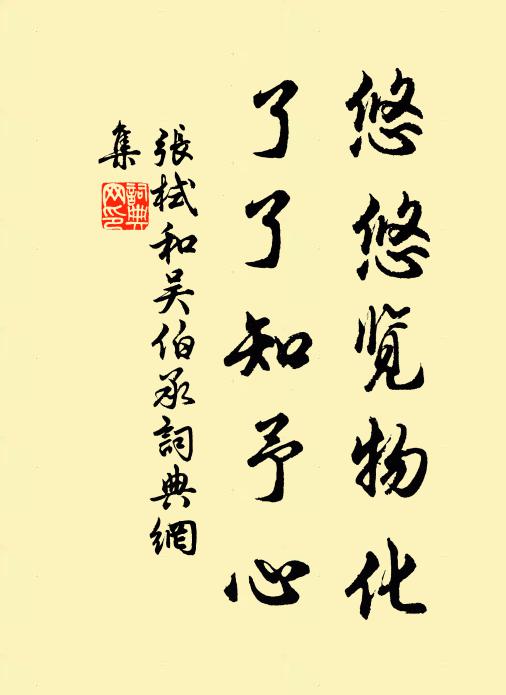 悠悠览物化
了了知予心
張栻和吴伯承詞典網
集
詞典网印